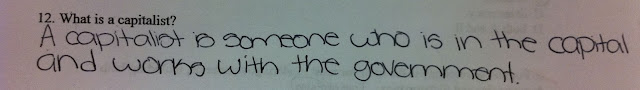 12. What is a capitalist?
A capitalist is someone who is in the capital
and works with the government.